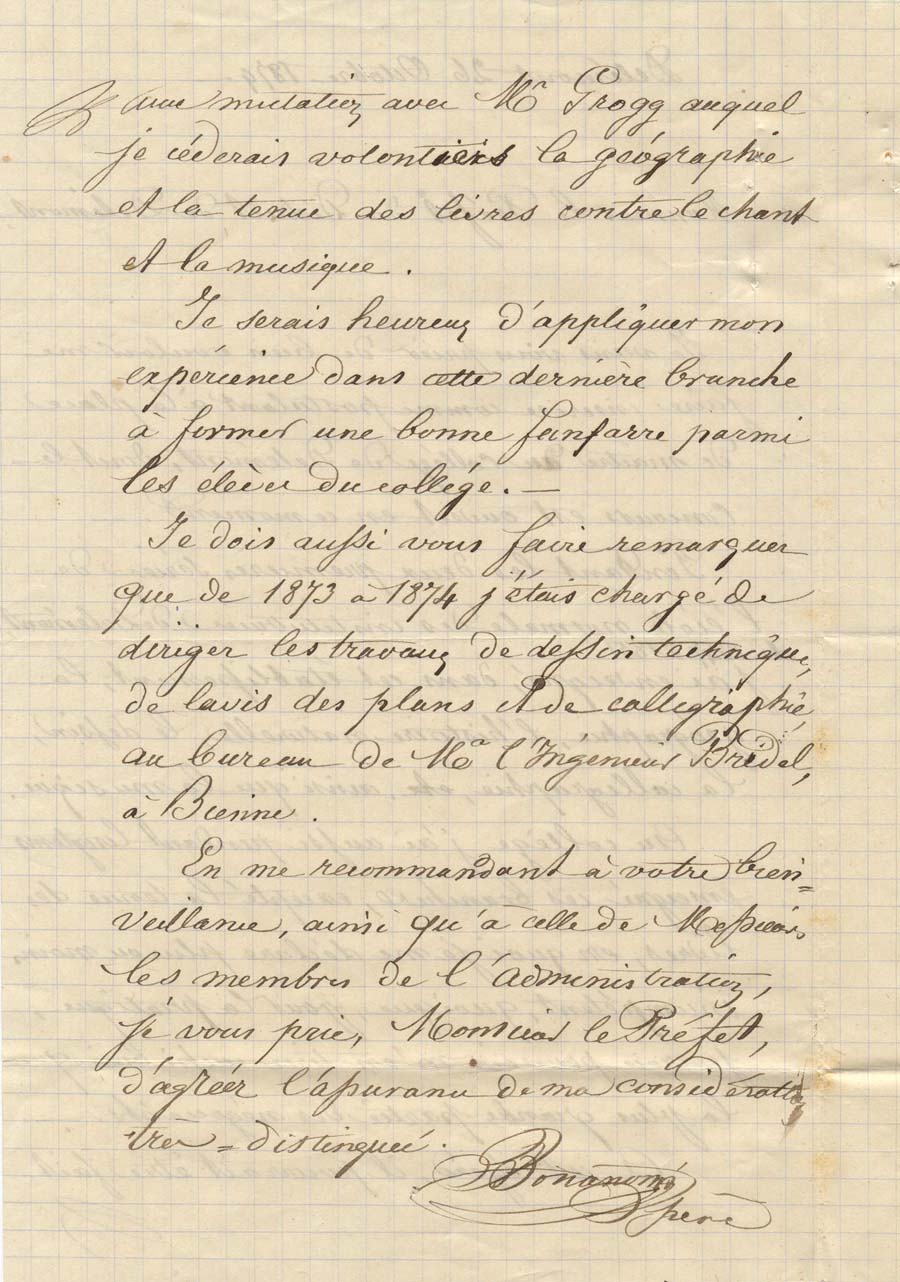 une mutation avec Mr Grogg auquel
je céderais volontiers la géographie
et la tenue des livres contre le chant
et la musique.
Je serais heureux d'appliquer mon
expérience dans cette dernière branche
à former une bonne fanfarre parmi
les élèves du collége. —
Je dois aussi vous faire remarquer
que de 1873 à 1874 j'étais chargé de
diriger les travaux de dessin technique,
de lavis des plans et de callegraphie,
au bureau de Mr l'Ingénieur Bridel,
à Bienne.
En me recommandant à votre bien=
veillance, ainsi qu'à celle de Messieurs
les membres de l'administration,
je vous prie, Monsieur le Préfet,
d'agréer l'assurance de ma considération
très=distinguée.
Bonanomi
père